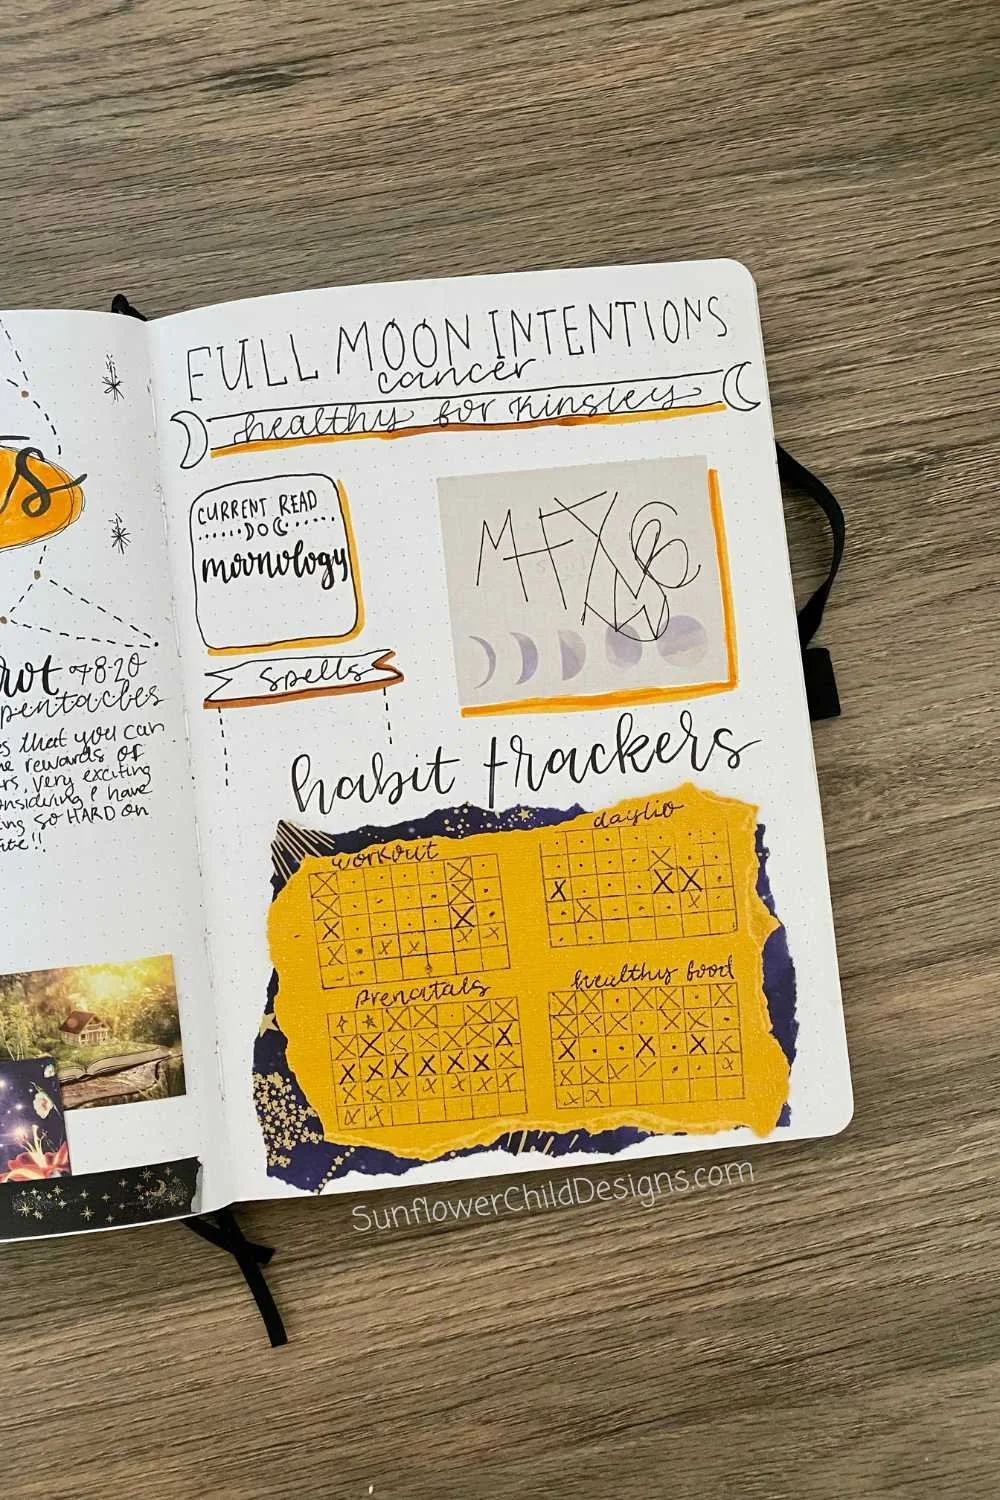 s
rot 7·8·20
pentacles
es that you can
he rewards of
rs, very exciting
onsidering I have
ing so HARD on
ite!!
FULL MOON INTENTIONS
cancer
healthy for Kinsley
CURRENT READ
moonology
spells
habit trackers
workout
daylio
prenatals
healthy food
SunflowerChildDesigns.com